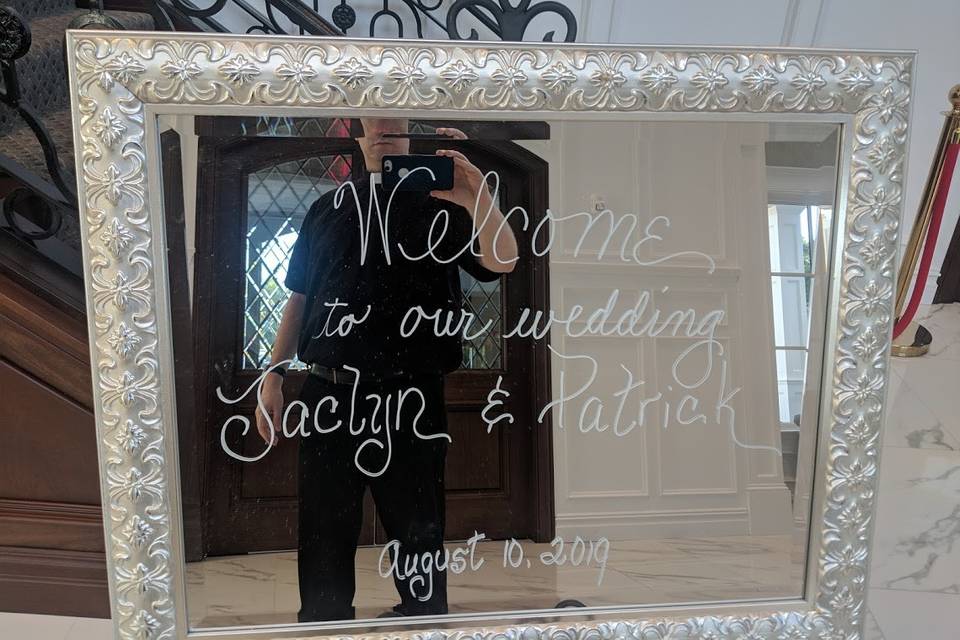 Welcome
to our wedding
Jaclyn & Patrick
August 10, 2019